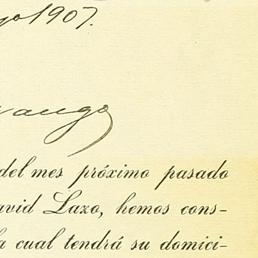 1907.
del mes próximo pasado
avid Lazo, hemos cons-
la cual tendrá su domici-